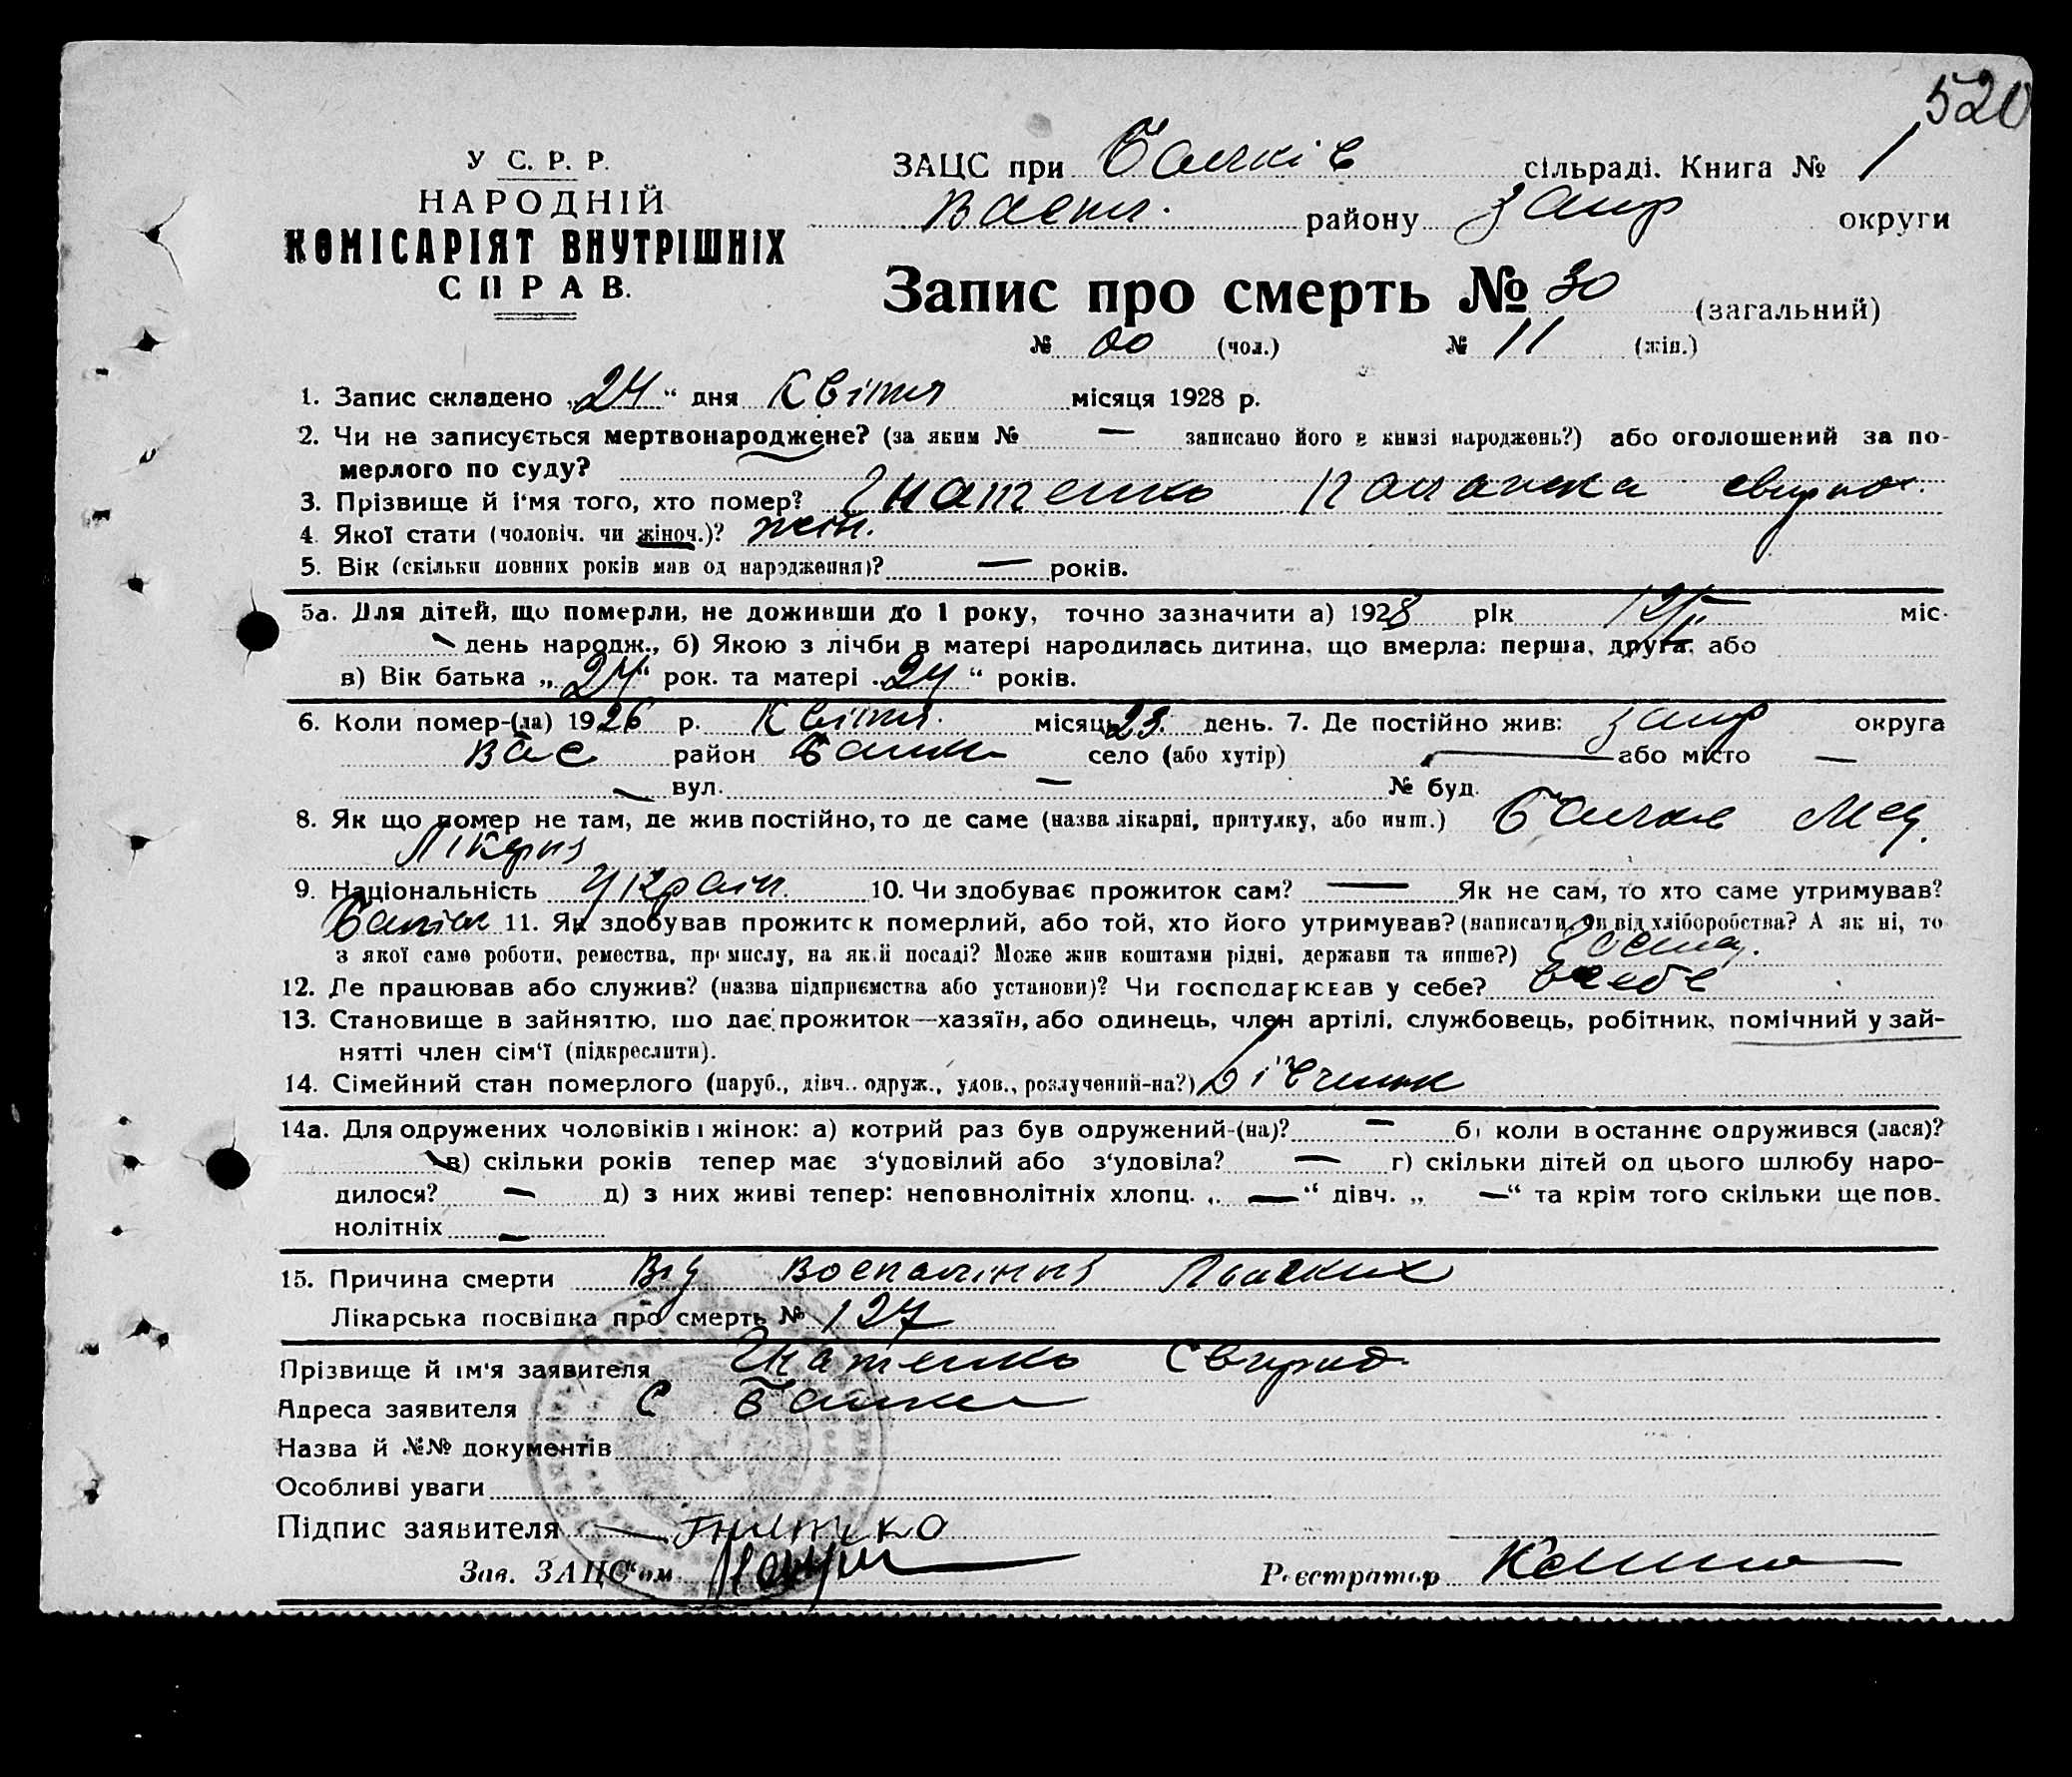 520
У С. Р. Р.
НАРОДНІЙ
КОМІСАРІЯТ ВНУТРІШНІХ
СПРАВ.
ЗАЦС при Балків сільраді. Книга № 1
Васил. району Запор округи
Запис про смерть № 30 (загальний)
№ 00 (чол.) № 11 (жін.)
1. Запис складено „24“ дня Квітня місяця 1928 р.
2. Чи не записується мертвонароджене? (за яким № — записано його в книзі народжень?) або оголошений за по-
мерлого по суду?
3. Прізвище й і'мя того, хто помер? Гнатенко
4. Якої стати (чоловіч. чи жіноч.)? жін.
5. Вік (скільки повних років мав од народження)? — років.
5а. Для дітей, що померли, не доживши до 1 року, точно зазначити а) 1928 рік міс.
день народж., б) Якою з лічби в матері народилась дитина, що вмерла: перша, друга, або
в) Вік батька „24“ рок. та матері „24“ років.
6. Коли помер-(ла) 1926 р. Квітня місяць 23. день. 7. Де постійно жив: Запор округа
Вас район Балки село (або хутір) — або місто —
вул. — № буд.
8. Як що помер не там, де жив постійно, то де саме (назва лікарні, притулку, або инш.) Балков Мед.
Лікарня
9. Національність Україн. 10. Чи здобуває прожиток сам? — Як не сам, то хто саме утримував?
11. Як здобував прожиток померлий, або той, хто його утримував? (написати, чи від хліборобства? А як ні, то
з якої саме роботи, ремества, промислу, на якій посаді? Може жив коштами рідні, держави та инше?)
12. Де працював або служив? (назва підприємства або установи)? Чи господарював у себе? в себе
13. Становище в зайняттю, що дає прожиток—хазяїн, або одинець, член артілі, службовець, робітник, помічний у зай-
нятті член сім'ї (підкреслити).
14. Сімейний стан померлого (паруб., дівч.. одруж., удов., розлучений-на?)
14а. Для одружених чоловіків і жінок: а) котрий раз був одружений-(на)? — б) коли востаннє одружився (лася)?
в) скільки років тепер має з'удовілий або з'удовіла? — г) скільки дітей од цього шлюбу наро-
дилося? — д) з них живі тепер: неповнолітніх хлопц. „—“ дівч. „—“ та крім того скільки ще пов.
нолітніх —
15. Причина смерти Від Воспаління
Лікарська посвідка про смерть № 127
Прізвище й ім'я заявителя Гнатенко Свирид
Адреса заявителя С Балки
Назва й №№ документів
Особливі уваги
Підпис заявителя
Зав. ЗАЦС'ом Реєстратор